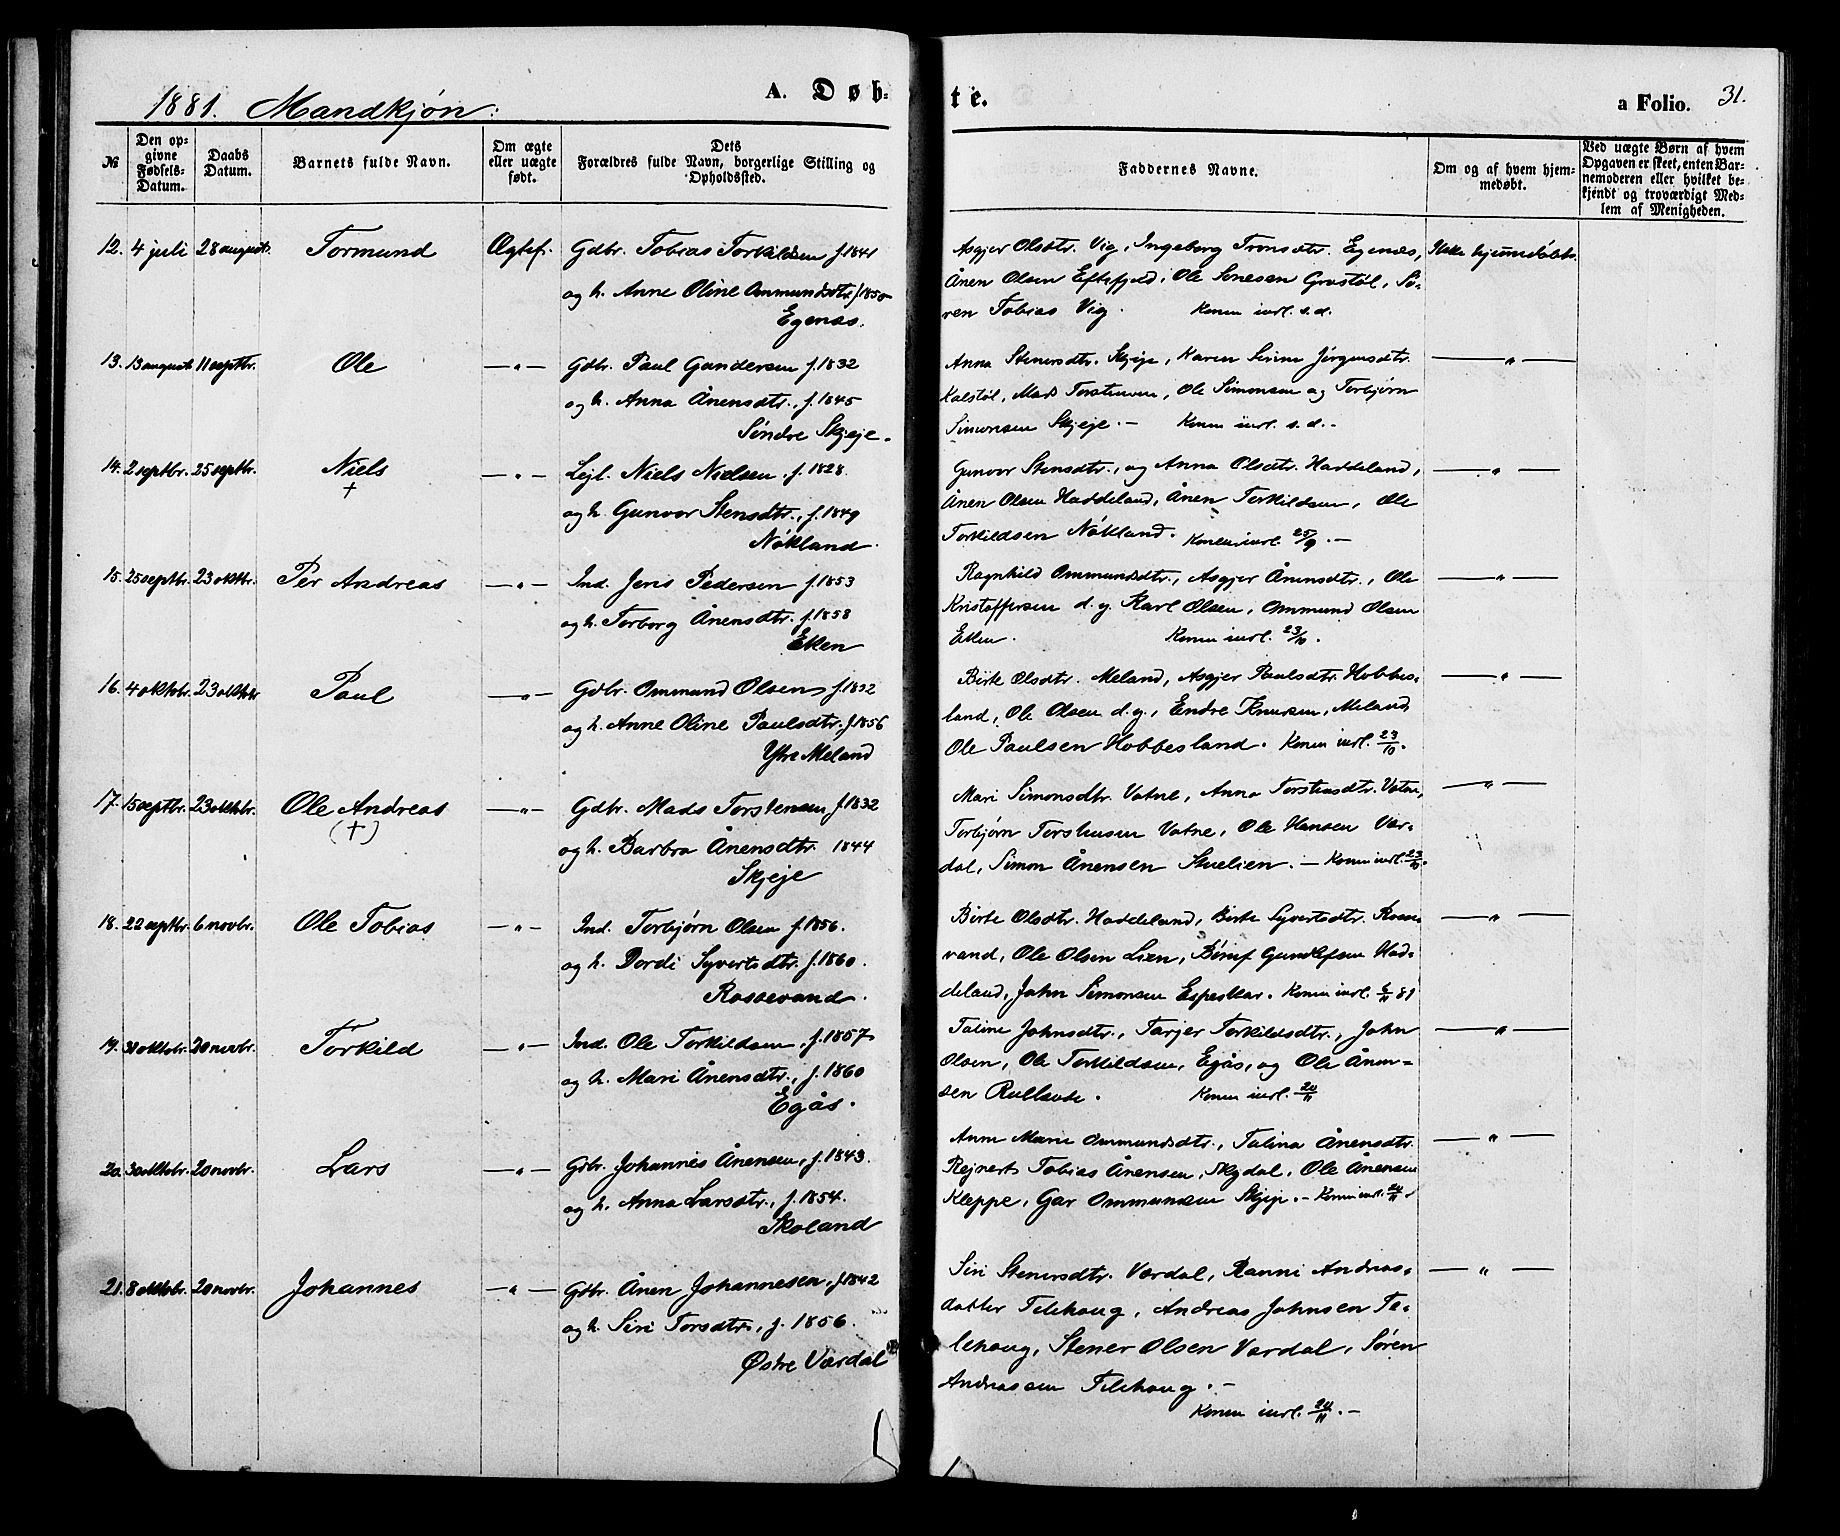 1881. Mandkjøn:
A. Døbte.
a Folio. 31.
№
Den opgivne Fødsels-Datum.
Daabs Datum.
Barnets fulde Navn.
Om ægte eller uægte født.
Dets Forældres fulde Navn, borgerlige Stilling og Opholdssted.
Faddernes Navne.
Om og af hvem hjemmedøbt.
Ved uægte Børn af hvem Opgaven er skeet, enten Barnemoderen eller hvilket bekjendt og troværdigt Medlem af Menigheden.
12. 4 juli 28 august. Tormund Ægtef. Gdbr. Tobias Torkildsen f. 1841
og h. Anne Oline Ommundsdtr. f. 1850
Egenæs.
Asgjer Olsdtr. Vig, Ingeborg Tronsdtr. Egenæs, Ikke hjemmedøbt.
Ånen Olsen Eftefjeld, Ole Sonesen Grostøl, Sø-
ren Tobias Vig. Konen inrl. s.d.
13. 13 august 11 septbr. Ole —„— Gdbr. Paul Gundersen f. 1832
og h. Anna Ånensdtr., f. 1845
Søndre Skjeje.
Anna Stenersdtr. Skjeje, Karen Sirine Jørgensdtr. —„—
Kalstøl, Mads Torstensen, Ole Simonsen og Torbjørn
Simonsen Skjeje. — Konen inrl. s.d.
14. 2 septbr. 25 septbr. Niels —„— Lejl. Niels Nielsen, f. 1828.
+
og h. Gunvor Stensdtr., f. 1849
Nøkland.
Gunvor Stensdtr., og Anna Olsdtr. Haddeland, —„—
Ånen Olsen Haddeland, Ånen Torkildsen, Ole
Torkildsen Nøkland. Konen inrl. 25/9. —
15. 25 septbr. 23 oktbr. Per Andreas —„— Ind. Jens Pedersen f. 1853
og h. Torborg Ånensdtr. f. 1858
Eken
Ragnhild Ommundsdtr., Asgjer Ånensdtr., Ole —„—
Kristoffersen d.y. Karl Olsen, Ommund Olsen
Eken. Konen inrl. 23/10.
16. 4 oktobr. 23 oktbr Paul —„— Gdbr. Ommund Olsen f. 1832
og h. Anne Oline Paulsdtr. f. 1856
Ytre Meland
Birte Olsdtr. Meland, Asgjer Paulsdtr. Hobbes- —„—
land, Ole Olsen d.y., Endre Knutsen, Meland,
Ole Paulsen Hobbesland. Konen inrl. 23/10.
17. 15 septbr. 23 oktbr. Ole Andreas —„— Gdbr. Mads Torstensen f. 1832
(+)
og h. Barbra Ånensdtr. 1844
Skjeje
Mari Simonsdtr. Vatne, Anna Torstensdtr. Vatne, —„—
Torbjørn Torstensen Vatne, Ole Hansen Vær-
dal, Simon Ånensen Stuelien. — Konen inrl. 23/10.
18. 22 septbr. 6 novbr. Ole Tobias —„— Ind. Torbjørn Olsen f. 1856.
og h. Dordi Syvertsdtr. f. 1860.
Rossevand.
Birte Olsdtr. Haddeland, Birte Syvertsdtr. Rosse- —„—
vand, Ole Olsen Lien, Børuf Gunulfsen Had-
deland, John Simonsen Espeskar. Konen inrl. 6/11 81
19. 31 oktobr. 20 novbr. Torkild —„— Ind. Ole Torkildsen, f. 1857
og h. Mari Ånensdtr., f. 1860
Egås.
Taline Johnsdtr., Tarjer Torkildsdtr., John —„—
Olsen, Ole Torkildsen, Egås, og Ole Ånen-
sen Konen inrl. 20/11
20. 30 oktobr. 20 novbr. Lars —„— Gdbr. Johannes Ånensen, f. 1843.
og h. Anna Larsdtr., f. 1854.
Skoland
Anne Marie Ommundsdtr., Talina Ånensdtr. —„—
Rejnert Tobias Ånensen, Skydal, Ole Ånensen
Kleppe, Gar Ommundsen Skjeje. — Konen inrl. 20/11.
21. 8 oktobr. 20 novbr. Johannes —„— Gdbr. Ånen Johannesen, f. 1842
og h. Siri Torsdtr., f. 1856.
Østre Værdal
Siri Stenersdtr. Værdal, Ranni Andreas- —„—
datter Telehaug, Andreas Johnsen Te-
lehaug, Stener Olsen Værdal, Søren
Andreassen Telehaug. —
Konen inrl. 20/11. —